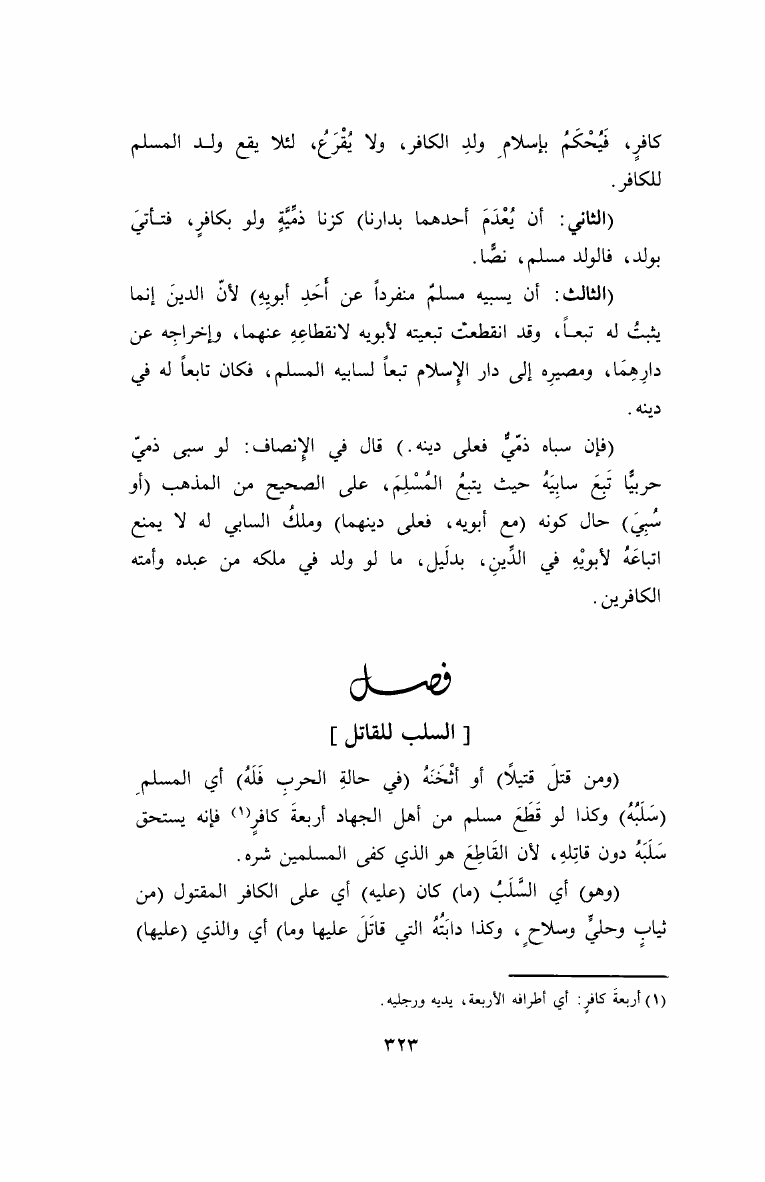 كافرٍ، فَيُحْكَمُ بإسلامِ ولدِ الكافر، ولا يُقْرَعُ، لئلا يقع ولـد المسلم
للكافر.
(الثاني: أن يُعْدَمَ أحدهما بدارنا) كزنا ذمِّيَّةٍ ولو بكافرٍ، فتـأتيَ
بولد، فالولد مسلم، نصًّا.
(الثالث: أن يسبيه مسلمٌ منفرداً عن أَحَدِ أبويهِ) لأنّ الدينَ إنما
يثبتُ له تبعـاً، وقد انقطعتْ تبعيته لأبويه لانقطاعِهِ عنهما، وإخراجِه عن
دارِهِمَا، ومصيرِه إلى دار الإِسلام تبعاً لسابيه المسلم، فكان تابعاً له في
دينه.
(فإن سباه ذمّيٌّ فعلى دينه.) قال في الإِنصاف: لو سبى ذميّ
حربيًّا تَبِعَ سابِيَهُ حيث يتبعُ المُسْلِمَ، على الصحيح من المذهب (أو
سُبِيَ) حال كونه (مع أبويه، فعلى دينهما) وملكُ السابي له لا يمنع
اتباعَهُ لأبويْهِ في الدِّينِ، بدلَيل، ما لو ولد في ملكه من عبده وأمته
الكافرين.
فصل
[ السلب للقاتل ]
(ومن قتلَ قتيلًا) أو أثْخَنَهُ (في حالةِ الحربِ فَلَهُ) أي المسلمِ
(سَلَبُهُ) وكذا لو قَطَعَ مسلم من أهل الجهاد أربعةَ كافرٍ(١) فإنه يستحق
سَلَبَهُ دون قاتِلِهِ، لأن القَاطِعَ هو الذي كفى المسلمين شره.
(وهو) أي السَّلَبُ (ما) كان (عليه) أي على الكافر المقتول (من
ثيابٍ وحليٍّ وسلاحٍ، وكذا دابَتُهُ التي قاتَلَ عليها وما) أي والذي (عليها)
(١) أربعةَ كافرٍ: أي أطرافه الأربعة، يديه ورجليه.
٣٢٣